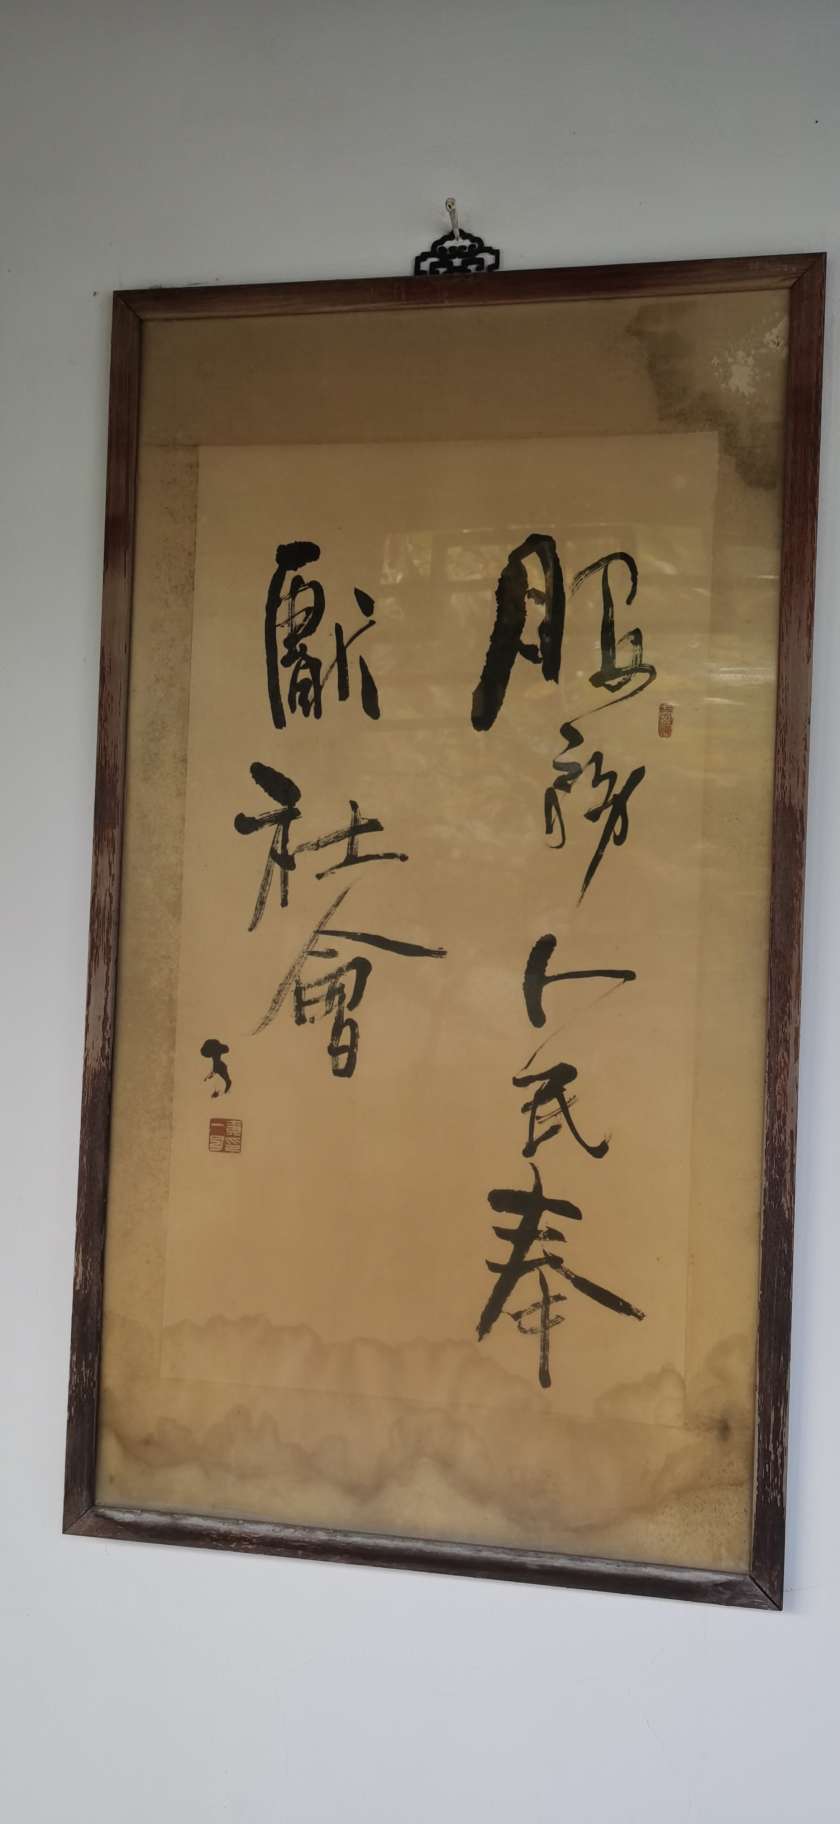 服務人民奉
獻社會